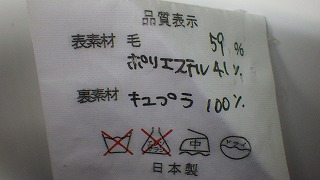 品質表示
表素材 毛 59%
ポリエステル 41%
裏素材 キュプラ 100%
エンソ
サラシ 中 ドライ
日本製